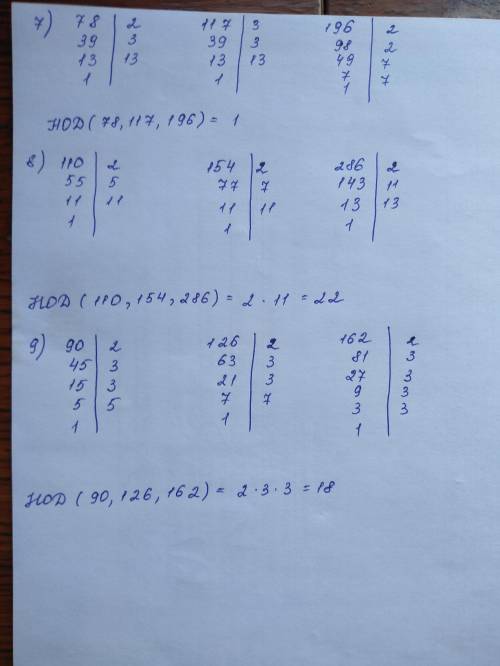 7) 78 | 2 117 | 3 196 | 2
39 | 3 39 | 3 98 | 2
13 | 13 13 | 13 49 | 7
1 1 7 | 7
1
НОД (78, 117, 196) = 1
8) 110 | 2 154 | 2 286 | 2
55 | 5 77 | 7 143 | 11
11 | 11 11 | 11 13 | 13
1 1 1
НОД (110, 154, 286) = 2 · 11 = 22
9) 90 | 2 126 | 2 162 | 2
45 | 3 63 | 3 81 | 3
15 | 3 21 | 3 27 | 3
5 | 5 7 | 7 9 | 3
1 1 3 | 3
1
НОД (90, 126, 162) = 2 · 3 · 3 = 18